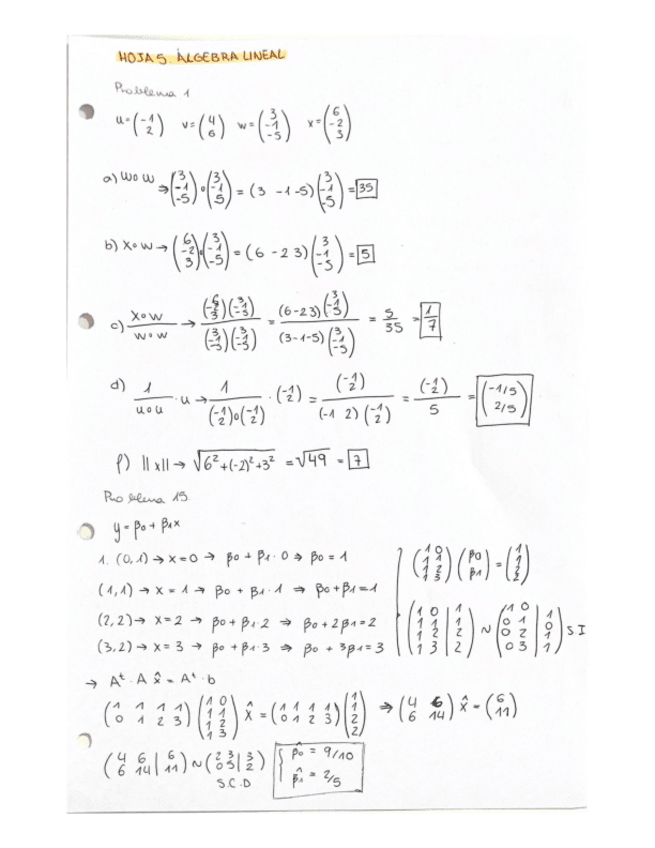 HOJA 5 ÁLGEBRA LINEAL
Problema 1
u=(-1 2) v=(4 6) w=(3 -1 -5) x=(6 -2 3)
a) w∘w → (3 -1 -5)∘(3 -1 5) = (3 -1 -5)(3 -1 -5) = 35
b) x∘w → (6 -2 3)∘(3 -1 -5) = (6 -2 3)(3 -1 -5) = 5
c) x∘w / w∘w → (6 -2 3)(3 -1 -5) / (3 -1 -5)(3 -1 -5) = (6-2 3)(3 -1 -5) / (3-1-5)(3 -1 -5) = 5/35 = 1/7
d) 1 / u∘u · u → 1 / (-1 2)∘(-1 2) · (-1 2) = (-1 2) / (-1 2)(-1 2) = (-1 2) / 5 = (-1/5 2/5)
f) ||x|| → √6²+(-2)²+3² = √49 = 7
Problema 15
y = β0 + β1x
1. (0,1) → x=0 → β0 + β1·0 ⇒ β0 = 1
(1,1) → x = 1 → β0 + β1·1 ⇒ β0+β1=1
(2,2) → x=2 → β0+β1·2 ⇒ β0+2β1=2
(3,2) → x=3 → β0+β1·3 ⇒ β0 + 3β1=3
(1 0 1 1 1 2 1 3)(β0 β1) = (1 1 2 2)
(1 0 | 1 1 1 | 1 1 2 | 2 1 3 | 2) ~ (1 0 | 1 0 1 | 0 0 2 | 1 0 3 | 1) S I
→ Aᵗ·A x̂ = Aᵗ·b
(1 1 1 1 0 1 2 3)(1 0 1 1 1 2 1 3) x̂ = (1 1 1 1 0 1 2 3)(1 1 2 2) ⇒ (4 6 6 14) x̂ = (6 11)
(4 6 | 6 6 14 | 11) ~ (2 3 | 3 0 5 | 2)
S.C.D
β̂0 = 9/10
β̂1 = 2/5